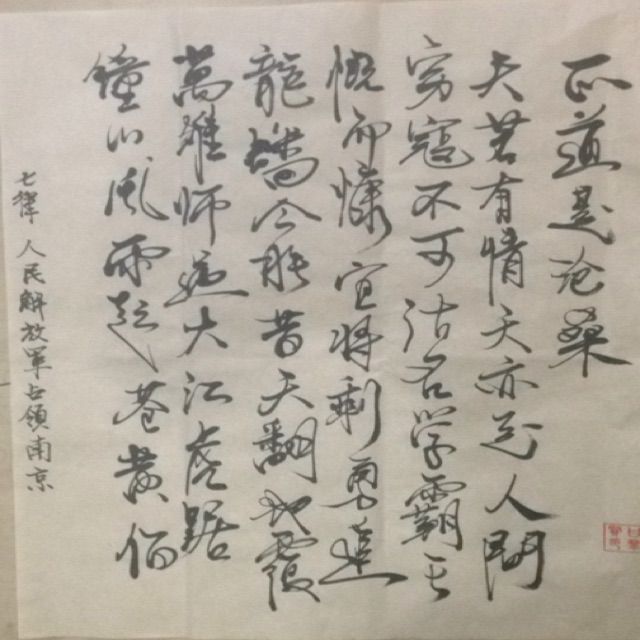 七律 人民解放軍占領南京
鐘山風雨起苍黄佰
萬雄师過大江虎踞
龍蟠今胜昔天翻地覆
慨而慷宜将剩勇追
穷寇不可沽名学霸王
天若有情天亦老人間
正道是沧桑